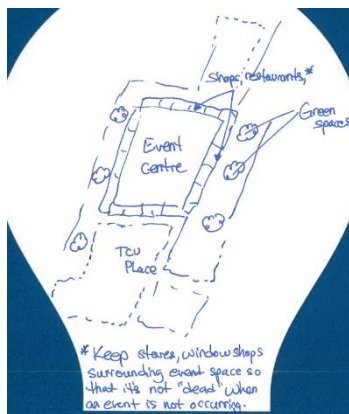 shops, restaurants,*
Green
spaces
Event
Centre
TCU
Place
* Keep stores, window shops
surrounding event space so
that it's not "dead" when
an event is not occurring.